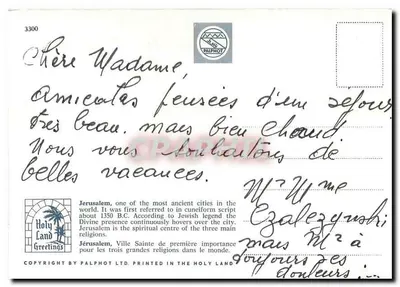 3300
PALPHOT
Chère Madame,
Amicales pensées d'un séjour
très beau, mais bien chaud
Nous vous souhaitons de
belles vacances.
Mr Mme
mais Mr a
toujours ses
douleurs!...
Jerusalem, one of the most ancient cities in the
world. It was first referred to in cuneiform script
about 1350 B.C. According to Jewish legend the
Divine presence continually hovers over the city.
Jerusalem is the spiritual centre of the three main
religions.
Jérusalem, Ville Sainte de première importance
pour les trois grandes religions dans le monde.
Holy
Land
Greetings
COPYRIGHT BY PALPHOT LTD. PRINTED IN THE HOLY LAND